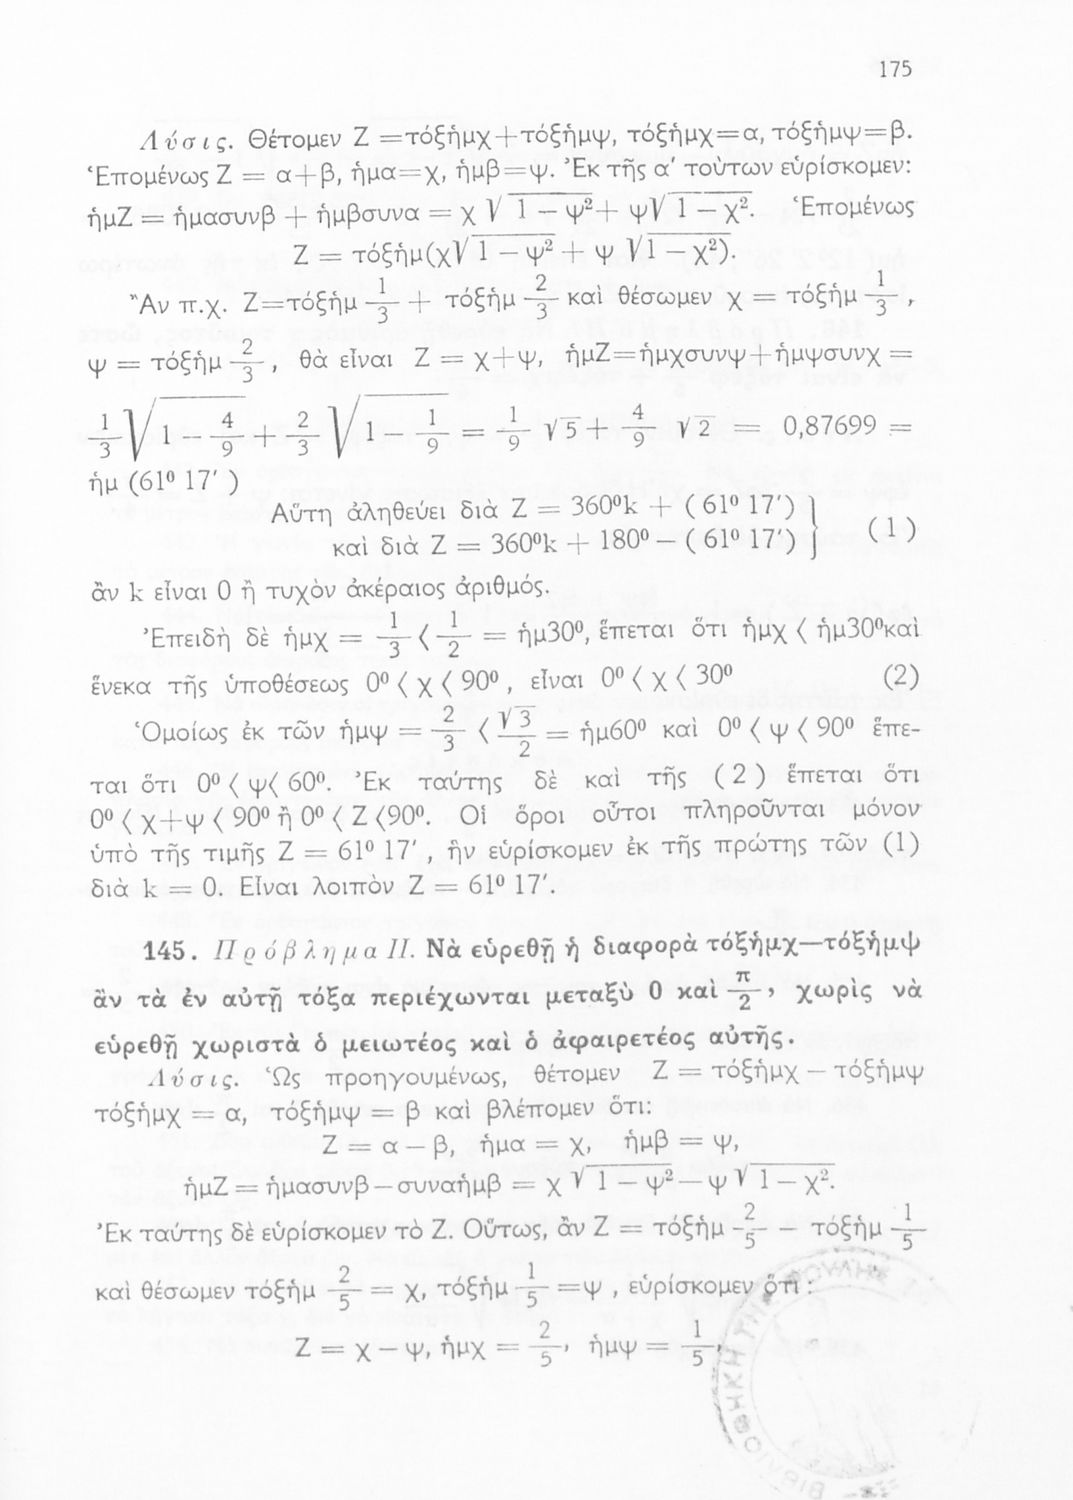 175
Λύσις. Θέτομεν Ζ =τόξἡμχ+τόξἡμψ, τόξἡμχ=α, τόξἡμψ=β.
Ἑπομένως Ζ = α+β, ἡμα=χ, ἡμβ=ψ. Ἐκ τῆς α′ τούτων εὑρίσκομεν:
ἡμΖ = ἡμασυνβ + ἡμβσυνα = χ √(1 − ψ²)+ ψ√(1 − χ²). Ἑπομένως
Ζ = τόξἡμ(χ√(1 − ψ²) + ψ √(1 − χ²)).
Ἂν π.χ. Ζ=τόξἡμ 1/3 + τόξἡμ 2/3 καὶ θέσωμεν χ = τόξἡμ 1/3 ,
ψ = τόξἡμ 2/3 , θὰ εἶναι Ζ = χ+ψ, ἡμΖ=ἡμχσυνψ+ἡμψσυνχ =
1/3 √(1 − 4/9) + 2/3 √(1 − 1/9) = 1/9 √5 + 4/9 √2 = 0,87699 =
ἡμ (61⁰ 17′ )
Αὕτη ἀληθεύει διὰ Ζ = 360⁰k + ( 61⁰ 17′)
καὶ διὰ Ζ = 360⁰k + 180⁰ − ( 61⁰ 17′) } ( 1 )
ἂν k εἶναι 0 ἢ τυχὸν ἀκέραιος ἀριθμός.
Ἐπειδὴ δὲ ἡμχ = 1/3 < 1/2 = ἡμ30⁰, ἕπεται ὅτι ἡμχ < ἡμ30⁰καὶ
ἕνεκα τῆς ὑποθέσεως 0⁰ < χ < 90⁰ , εἶναι 0⁰ < χ < 30⁰ (2)
Ὁμοίως ἐκ τῶν ἡμψ = 2/3 < √3/2 = ἡμ60⁰ καὶ 0⁰ < ψ < 90⁰ ἕπε-
ται ὅτι 0⁰ < ψ< 60⁰. Ἐκ ταύτης δὲ καὶ τῆς ( 2 ) ἕπεται ὅτι
0⁰ < χ+ψ < 90⁰ ἢ 0⁰ < Ζ <90⁰. Οἱ ὅροι οὗτοι πληροῦνται μόνον
ὑπὸ τῆς τιμῆς Ζ = 61⁰ 17′ , ἣν εὑρίσκομεν ἐκ τῆς πρώτης τῶν (1)
διὰ k = 0. Εἶναι λοιπὸν Ζ = 61⁰ 17′.
145. Πρόβλημα II. Νὰ εὑρεθῇ ἡ διαφορὰ τόξἡμχ—τόξἡμψ
ἂν τὰ ἐν αὐτῇ τόξα περιέχωνται μεταξὺ 0 καὶ π/2 , χωρὶς νὰ
εὑρεθῇ χωριστὰ ὁ μειωτέος καὶ ὁ ἀφαιρετέος αὐτῆς.
Λύσις. Ὡς προηγουμένως, θέτομεν Ζ = τόξἡμχ − τόξἡμψ
τόξἡμχ = α, τόξἡμψ = β καὶ βλέπομεν ὅτι:
Ζ = α − β, ἡμα = χ, ἡμβ = ψ,
ἡμΖ = ἡμασυνβ − συναἡμβ = χ √(1 − ψ²) − ψ √(1 − χ²).
Ἐκ ταύτης δὲ εὑρίσκομεν τὸ Ζ. Οὕτως, ἂν Ζ = τόξἡμ 2/5 − τόξἡμ 1/5
καὶ θέσωμεν τόξἡμ 2/5 = χ, τόξἡμ 1/5 =ψ , εὑρίσκομεν ὅτι :
Ζ = χ − ψ, ἡμχ = 2/5, ἡμψ = 1/5,